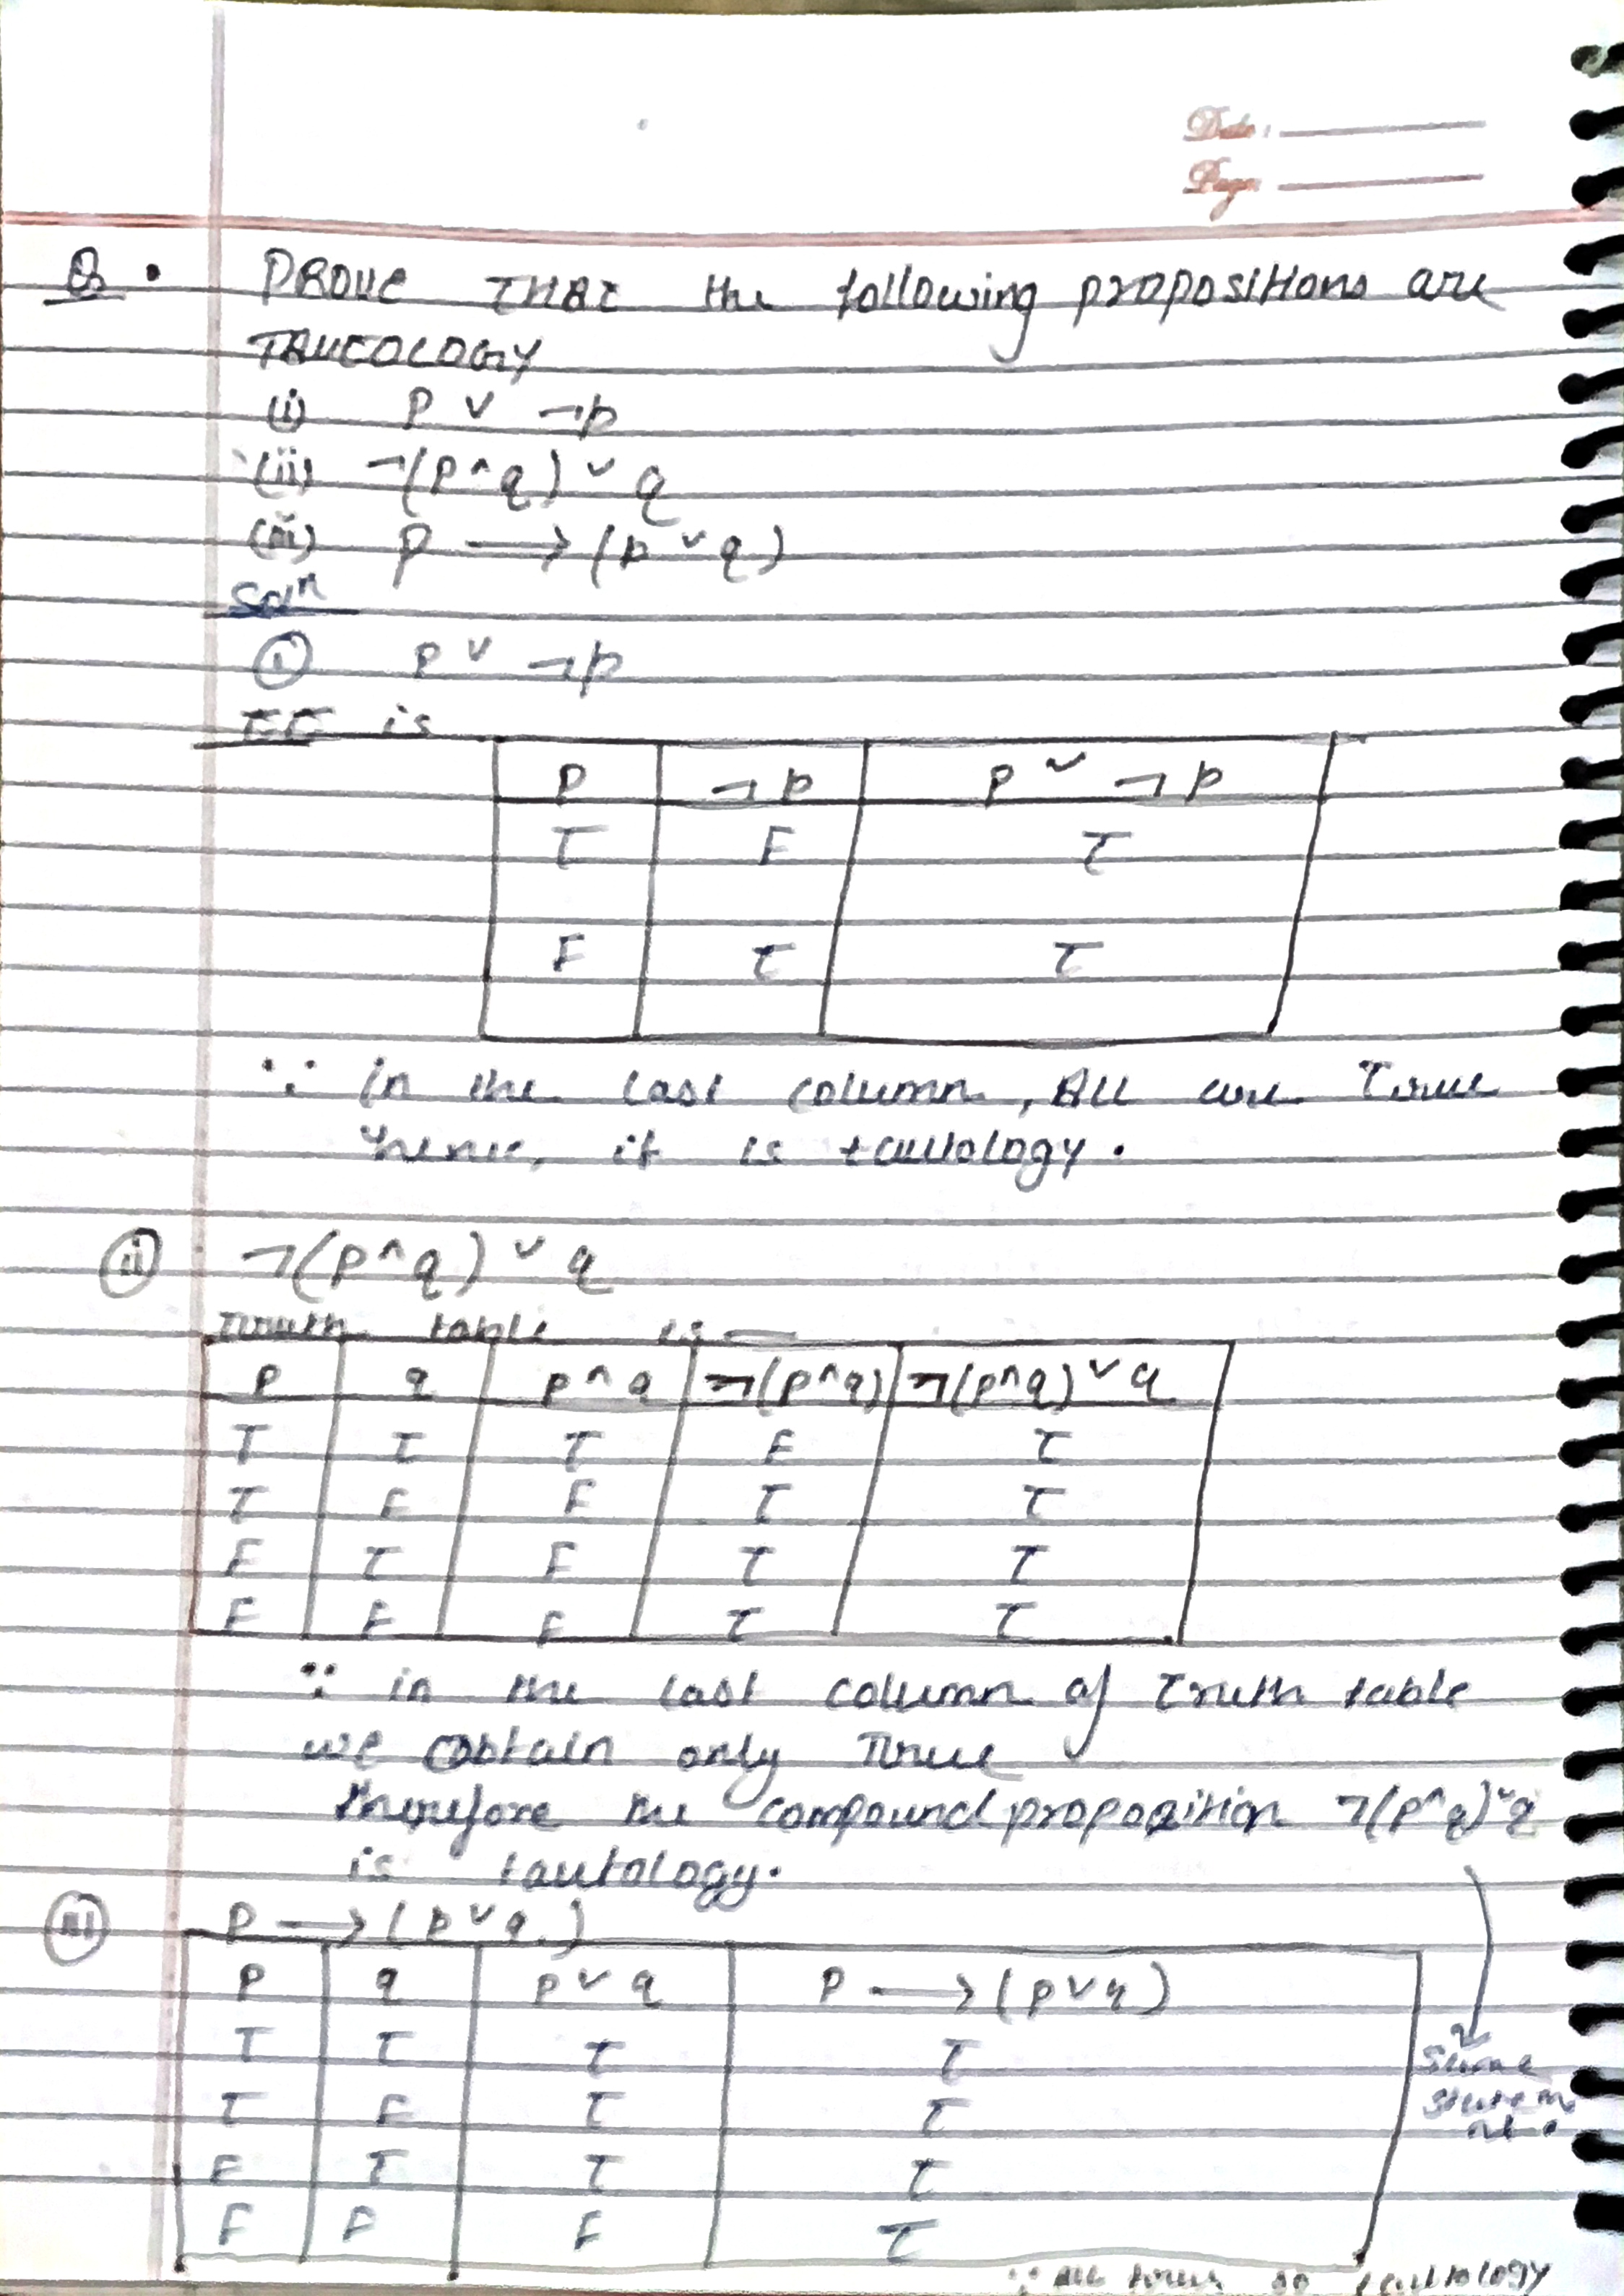 Date:
Page
Q. PROVE THAT the following propositions are
TAUTOLOGY
(i) p ∨ ¬p
(ii) ¬(p ∧ q) ∨ q
(iii) p → (p ∨ q)
Solⁿ
(i) p ∨ ¬p
TT is
p ¬p p ∨ ¬p
T F T
F T T
∵ in the last column, All are True
hence, it is tautology.
(ii) ¬(p ∧ q) ∨ q
Truth table is —
p q p ∧ q ¬(p ∧ q) ¬(p ∧ q) ∨ q
T T T F T
T F F T T
F T F T T
F F F T T
∵ in the last column of Truth table
we obtain only True
therefore the compound proposition ¬(p ∧ q) ∨ q
is tautology.
(iii) p → (p ∨ q)
p q p ∨ q p → (p ∨ q)
T T T T
T F T T
F T T T
F F F T
Same
statem
ent.
∵ All true so tautology